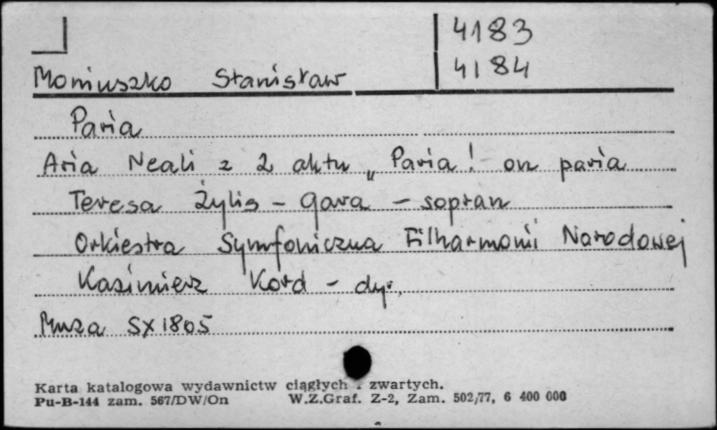 4183
Moniuszko Stanisław 4184
Paria
Aria Neali z 2 aktu „Paria! on paria
Teresa Żylis - Gara - sopran
Orkiestra Symfoniczna Filharmonii Narodowej
Kazimierz Kord - dyr.
Muza SX 1805
Karta katalogowa wydawnictw ciągłych i zwartych.
Pu-B-144 zam. 567/DW/On W.Z.Graf. Z-2, Zam. 502/77, 6 400 000